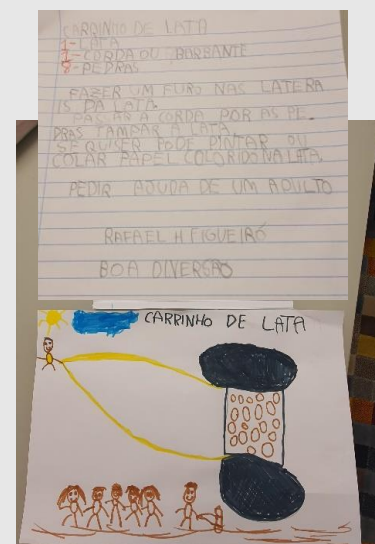 CARRINHO DE LATA
1-LATA
1-CORDA OU BARBANTE
8-PEDRAS
FAZER UM FURO NAS LATERA
IS DA LATA.
PASSAR A CORDA POR AS PE-
DRAS TAMPAR A LATA.
SE QUISER PODE PINTAR OU
COLAR PAPEL COLORIDO NA LATA.
PEDIR AJUDA DE UM ADULTO
RAFAEL H FIGUEIRÓ
BOA DIVERSÃO
CARRINHO DE LATA